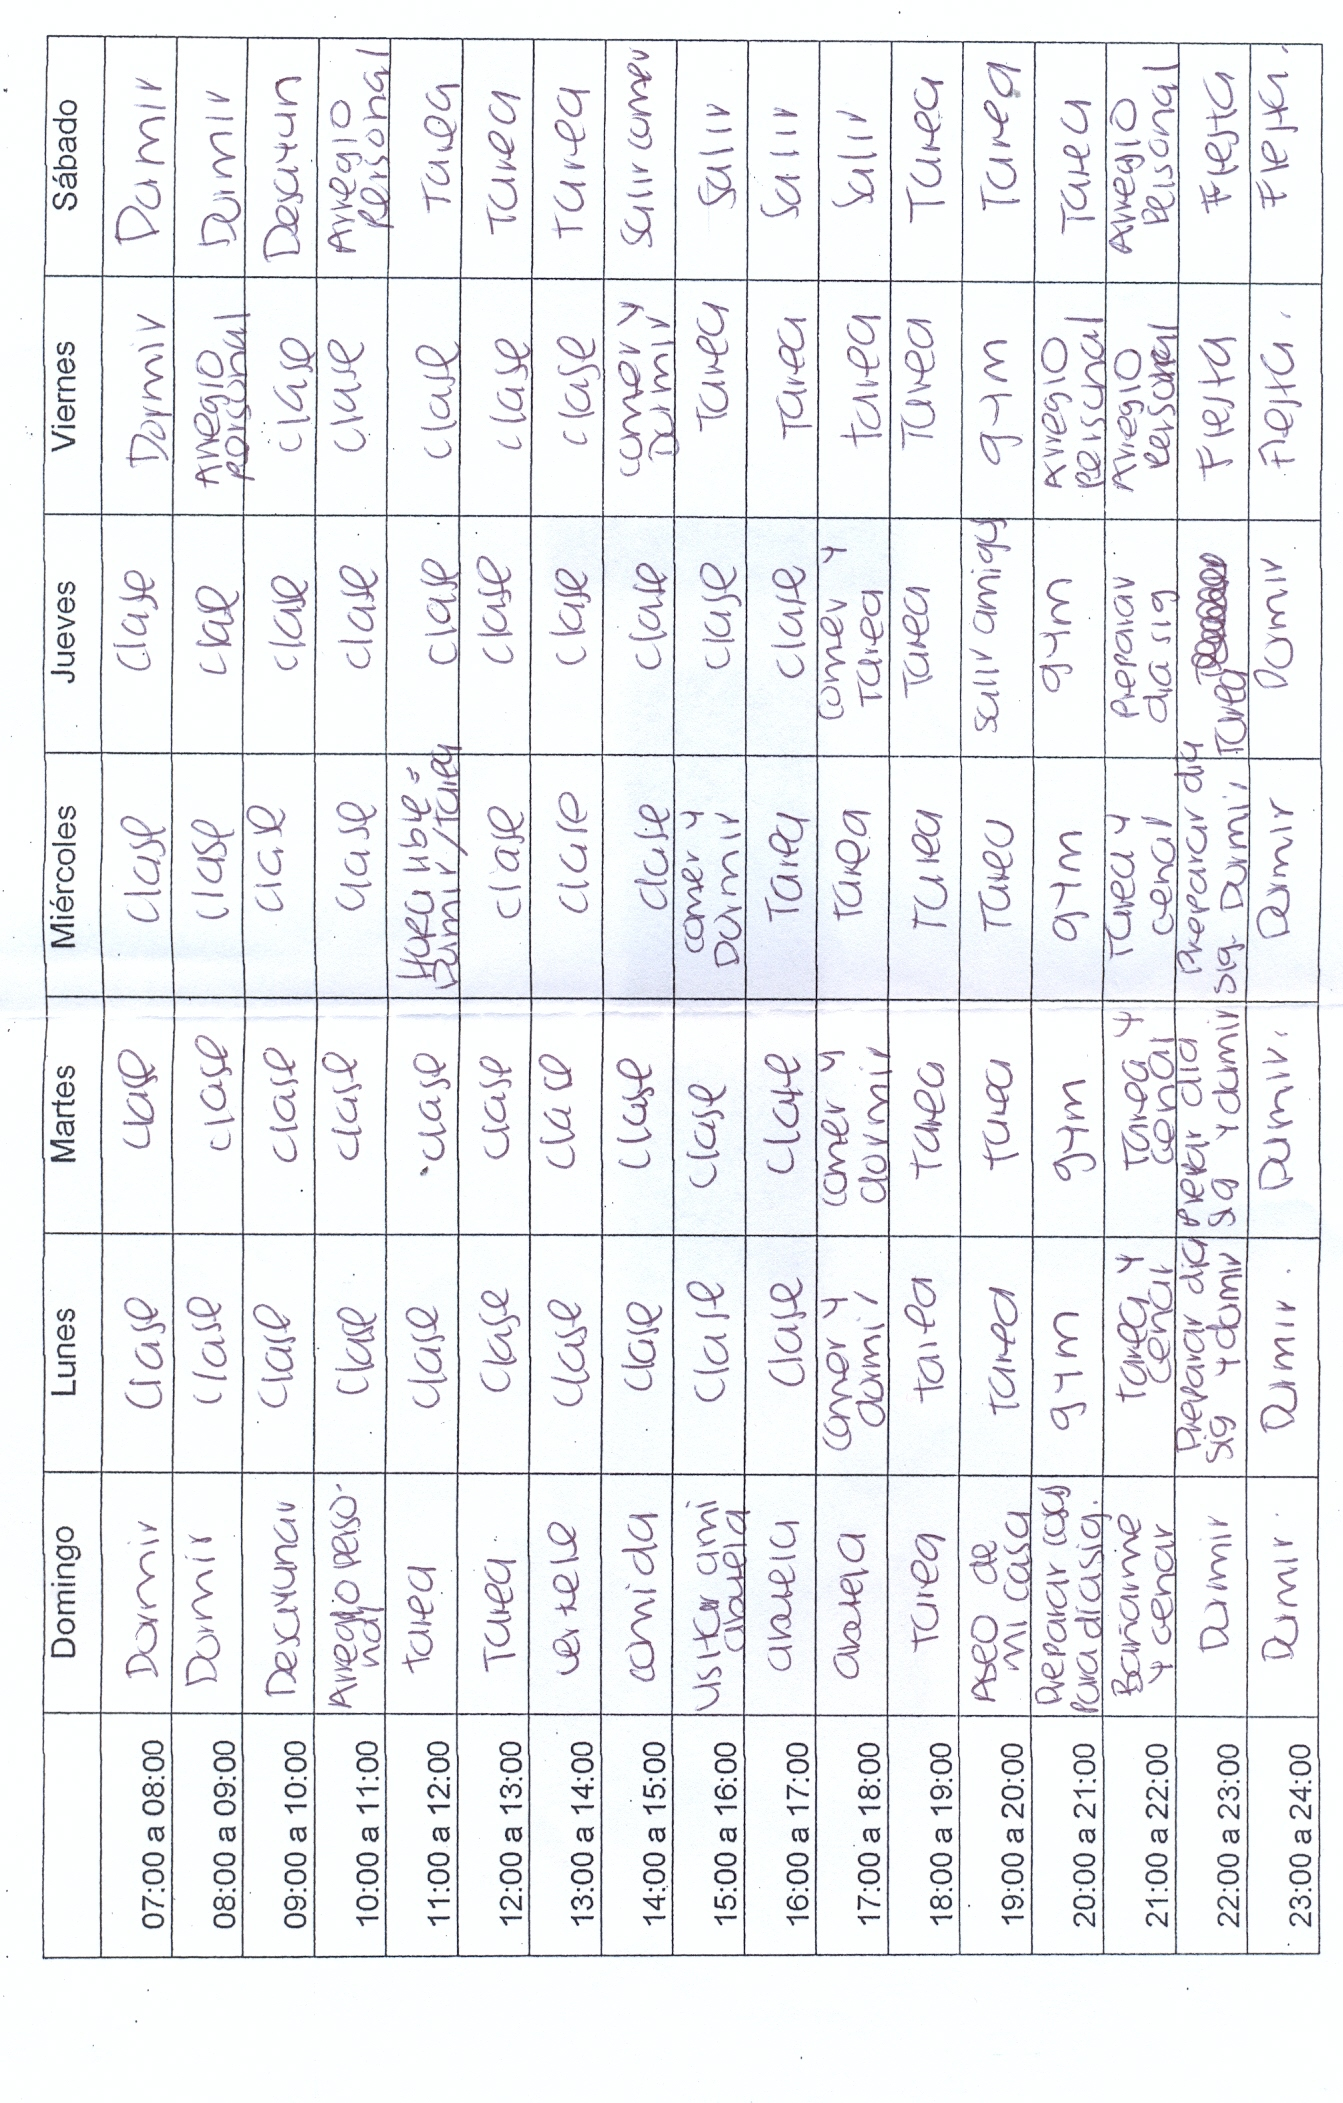 Domingo Lunes Martes Miércoles Jueves Viernes Sábado
07:00 a 08:00 Dormir Clase Clase Clase Clase Dormir Dormir
08:00 a 09:00 Dormir Clase Clase Clase Clase Arreglo personal Dormir
09:00 a 10:00 Desayunar Clase Clase Clase Clase Clase Desayun
10:00 a 11:00 Arreglo personal Clase Clase Clase Clase Clase Arreglo personal
11:00 a 12:00 Tarea Clase Clase Hora libre = Dormir/Tarea Clase Clase Tarea
12:00 a 13:00 Tarea Clase Clase Clase Clase Clase Tarea
13:00 a 14:00 ver tele Clase Clase Clase Clase Clase Tarea
14:00 a 15:00 comida Clase Clase clase Clase comer y Dormir salir comer
15:00 a 16:00 visitar a mi abuela Clase Clase comer y Dormir Clase Tarea Salir
16:00 a 17:00 abuela Clase Clase Tarea Clase Tarea Salir
17:00 a 18:00 abuela comer y dormir comer y dormir Tarea comer y Tarea tarea Salir
18:00 a 19:00 Tarea tarea Tarea Tarea Tarea Tarea Tarea
19:00 a 20:00 Aseo de mi casa tarea Tarea Tarea salir amigas gym Tarea
20:00 a 21:00 Preparar cosas para dia sig. gym gym gym gym Arreglo personal Tarea
21:00 a 22:00 Bañarme y cenar Tarea y cenar Tarea y cenar Tarea y cenar Preparar dia sig Arreglo personal Arreglo personal
22:00 a 23:00 Dormir Preparar dia sig y dormir Prepar dia sig y dormir Preparar dia sig. Dormir Tarea Fiesta Fiesta
23:00 a 24:00 Dormir. Dormir. Dormir. Dormir Dormir Fiesta. Fiesta.